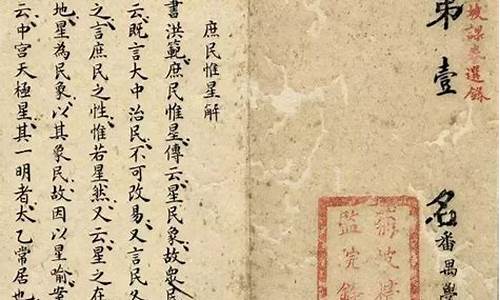 坡課卷選錄
第壹名番禺學
菊坡精
監院錄
庶民惟星解
書洪範庶民惟星傳云星民象故衆民
云既言大中治民不可改易又言民
之言庶民之性惟若星然又云星之在
地星為民象以其象民故因以星喻案
云中宮天極星其一明者太乙常居也